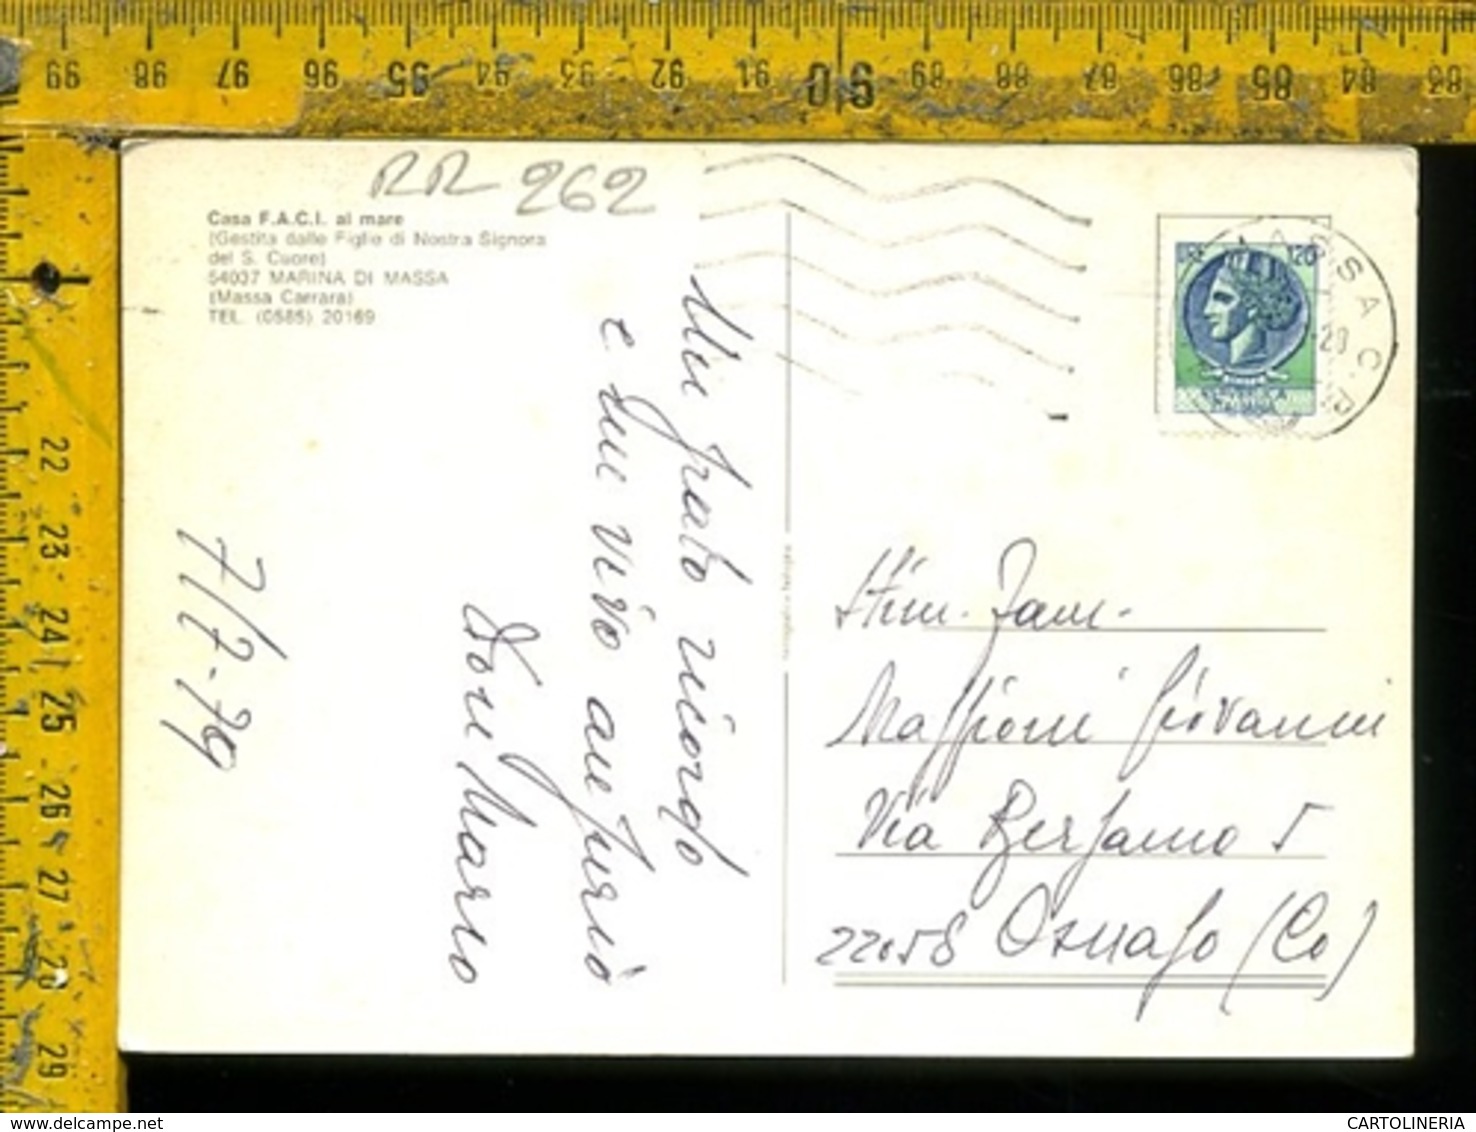 99 98 97 96 95 94 93 92 91 90 89 88 87 86 85 84 83
22 23 24 25 26 27 28 29
RR 262
Casa F.A.C.I. al mare
(Gestita dalle Figlie di Nostra Signora
del S. Cuore)
54037 MARINA DI MASSA
(Massa Carrara)
TEL. (0585) 20169
Un grato ricordo
e un vivo augurio
Don Marco
7/7-79
LIRE 120
MASSA C.
20
Stim. Fam.
Massironi Giovanni
Via Bergamo 5
22058 Osnago (Co)
www.delcampe.net
CARTOLINERIA